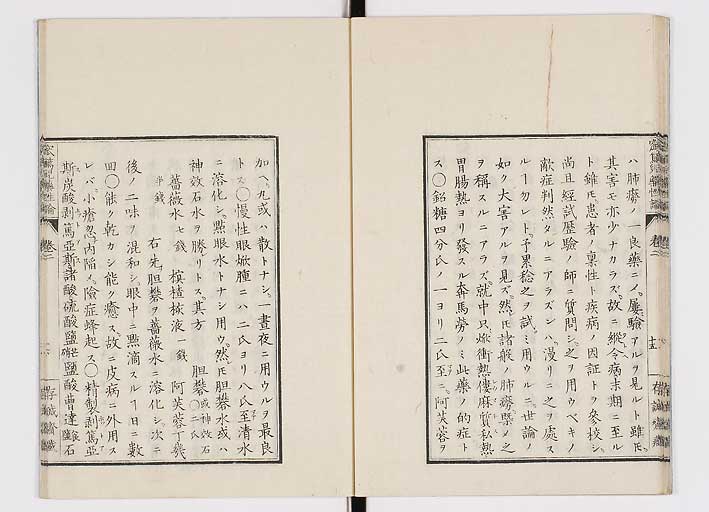 ハ肺癆ノ一良藥ニ〆、屢驗アルヲ見ルト雖𪜈、
其害モ亦少ナカラズ、故ニ縱令病末期ニ至ル
ト雖𪜈、患者ノ稟性ト疾病ノ因証トヲ參校シ、
尚且經試歷驗ノ師ニ質問シ、之ヲ用ウベキノ
敵症判然タルニアラズンハ、漫リニ之ヲ處ス
ルヿ勿レト、予累稔之ヲ試ミ用ウルニ、世論ノ
如ク大害アルヲ見ズ、然𪜈諸般ノ肺癆槩ノ之
ヲ稱スルニアラズ、就中只焮衝熱僂麻質私熱
胃腸熱ヨリ發スル奔馬勞ノミ此藥ノ的症ト
ス〇鉛糖四分氏ノ一ヨリ二氏至ニ、阿芙蓉ヲ
加ヘ、丸或ハ散トナシ、一晝夜ニ用ウルヲ最良
トス〇慢性眼焮腫ニハ二氏ヨリ八氏至清水
ニ溶化シ、點眼水トナシ用ウ、然𪜈胆礬水或ハ
神效石水ヲ勝リトス、其方 胆礬或神效石〇二氏
薔薇水七錢 榠樝梂液一錢 阿芙蓉丁幾
半錢 右先胆礬ヲ薔薇水ニ溶化シ、次ニ
後ノ二味ヲ混和シ眼中ニ點滴スルヿ日ニ數
回〇能ク乾カシ能ク癒ス、故ニ皮病ニ外用ス
レバ、小瘡忽内陷〆、險症蜂起ス〇精製剥篤亞
斯炭酸剥篤亞斯諸酸硫酸鹽鹽酸曹達石
存誠齋藏